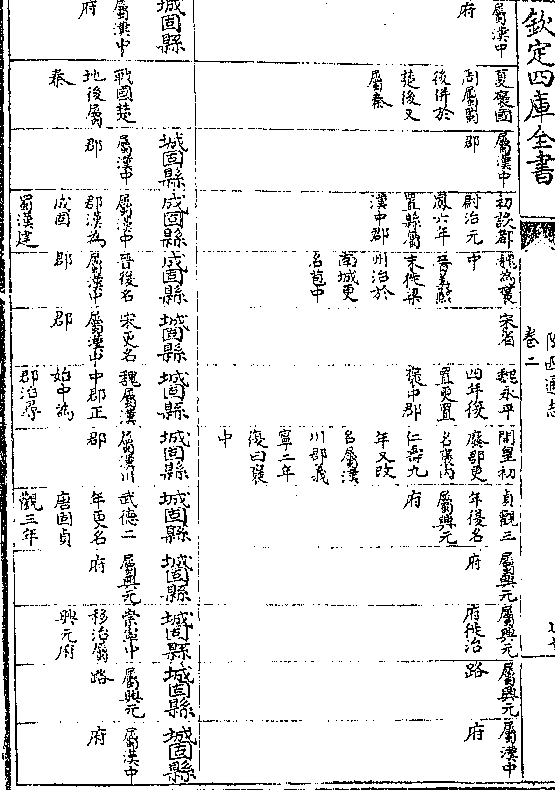 欽定四庫全書
陝西通志
卷二
屬漢中
府
夏褒國
周屬蜀
後併於
楚後又
屬秦
屬漢中
郡
初設都
尉治元
鳳六年
置縣屬
漢中郡
魏為褒
中
晉義熙
末徙梁
州治於
南城更
名苞中
宋省
魏永平
四年復
置更置
褒中郡
開皇初
廢郡更
名褒內
仁壽九
年又改
名屬漢
川郡義
寧二年
復曰褒
中
貞觀三
年復名
屬興元
府
屬興元
府
屬興元
府徙治
屬興元
路
屬漢中
府
城固縣
屬漢中
府
戰國楚
地後屬
秦
城固縣
屬漢中
郡
成固縣
屬漢中
郡漢為
成固
蜀漢建
成固縣
晉後名
屬漢中
郡
城固縣
宋更名
屬漢中
郡
城固縣
魏屬漢
中郡正
始中為
郡治尋
城固縣
屬漢川
郡
城固縣
武德二
年更名
唐固貞
觀三年
城固縣
屬興元
府
城固縣
崇寧中
移治屬
興元府
城固縣
屬興元
路
城固縣
屬漢中
府